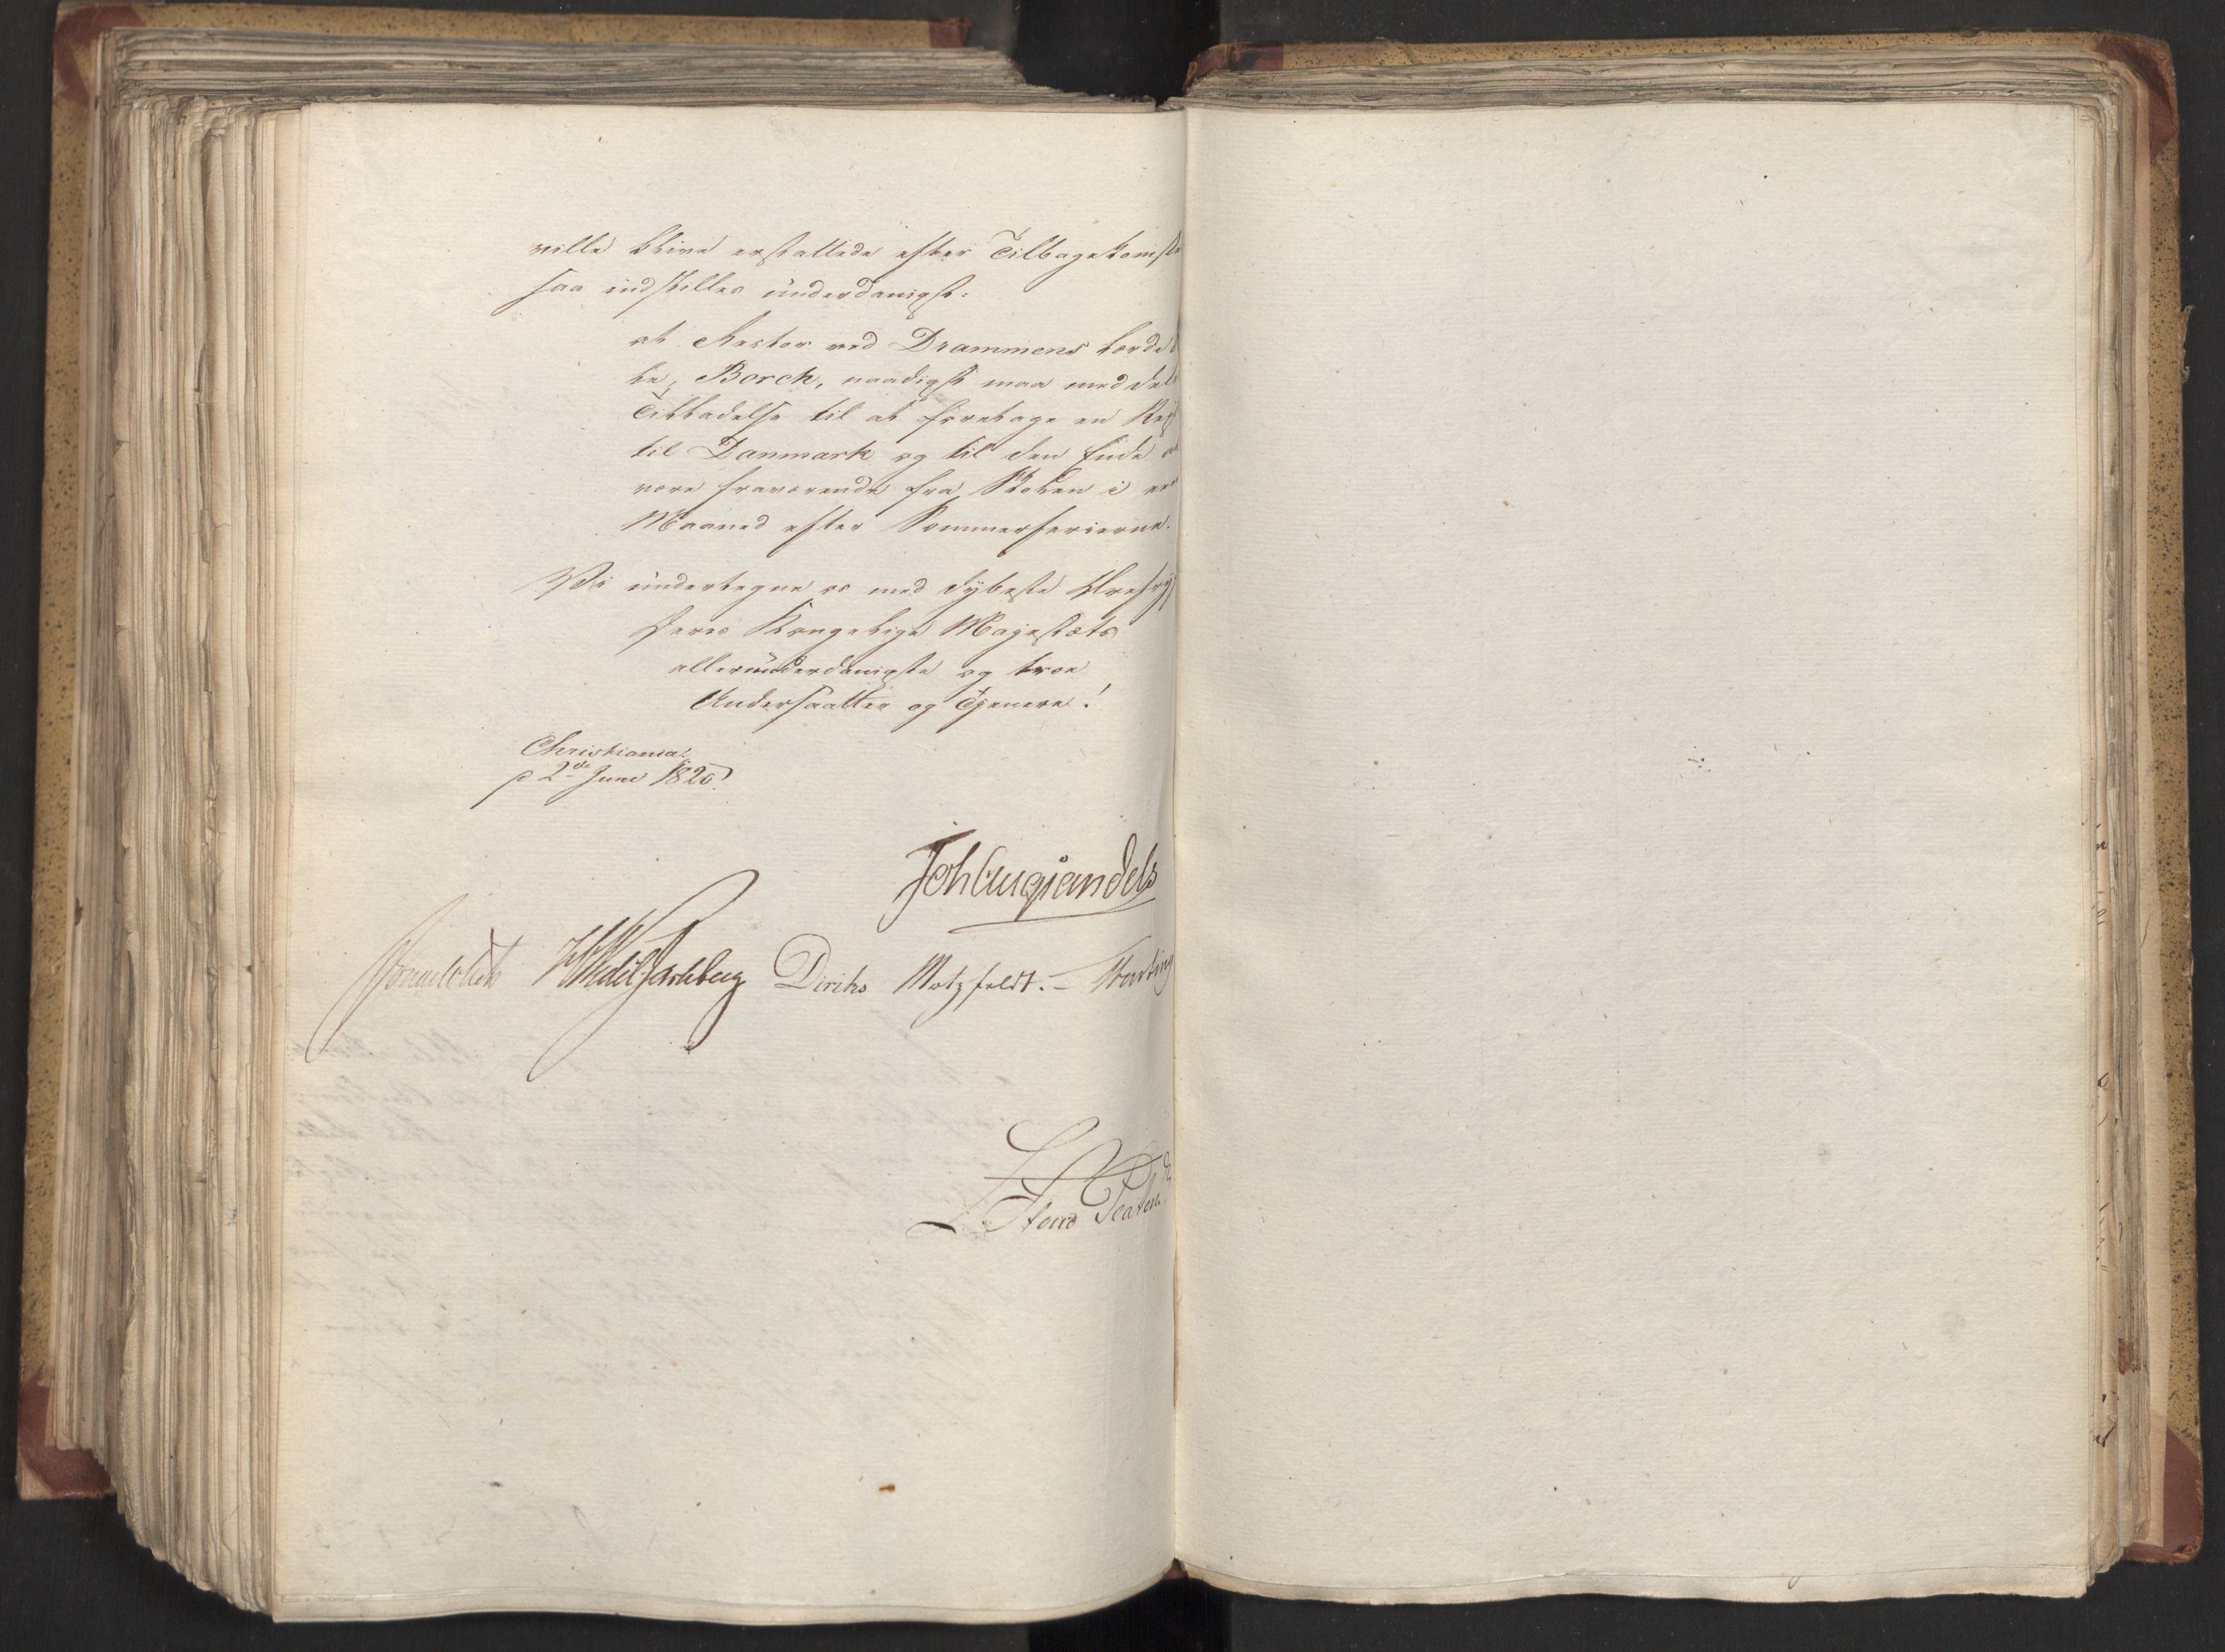 ville blive erstattede efter Tilbagekomste
saa indstilles underdanigst:
at Rector ved Drammens lærde
le, Borch, naadigst maa meddele
Tilladelse til at foretage en Rej
til Danmark og til den Ende at
være fraværende fra Skolen i en
Maaned efter Sommerferierne.
Vi undertegne os med dybeste Ærefry
Deres Kongelige Majestæts
allerunderdanigste og troe
Undersaatter og Tjenere!
Christiania
d 2de Juni 1820.
Joh Aug Sandels
Sommerhielm HWedelJarlsberg Diriks Motzfeldt. – Fasting
L. Stoud Platou